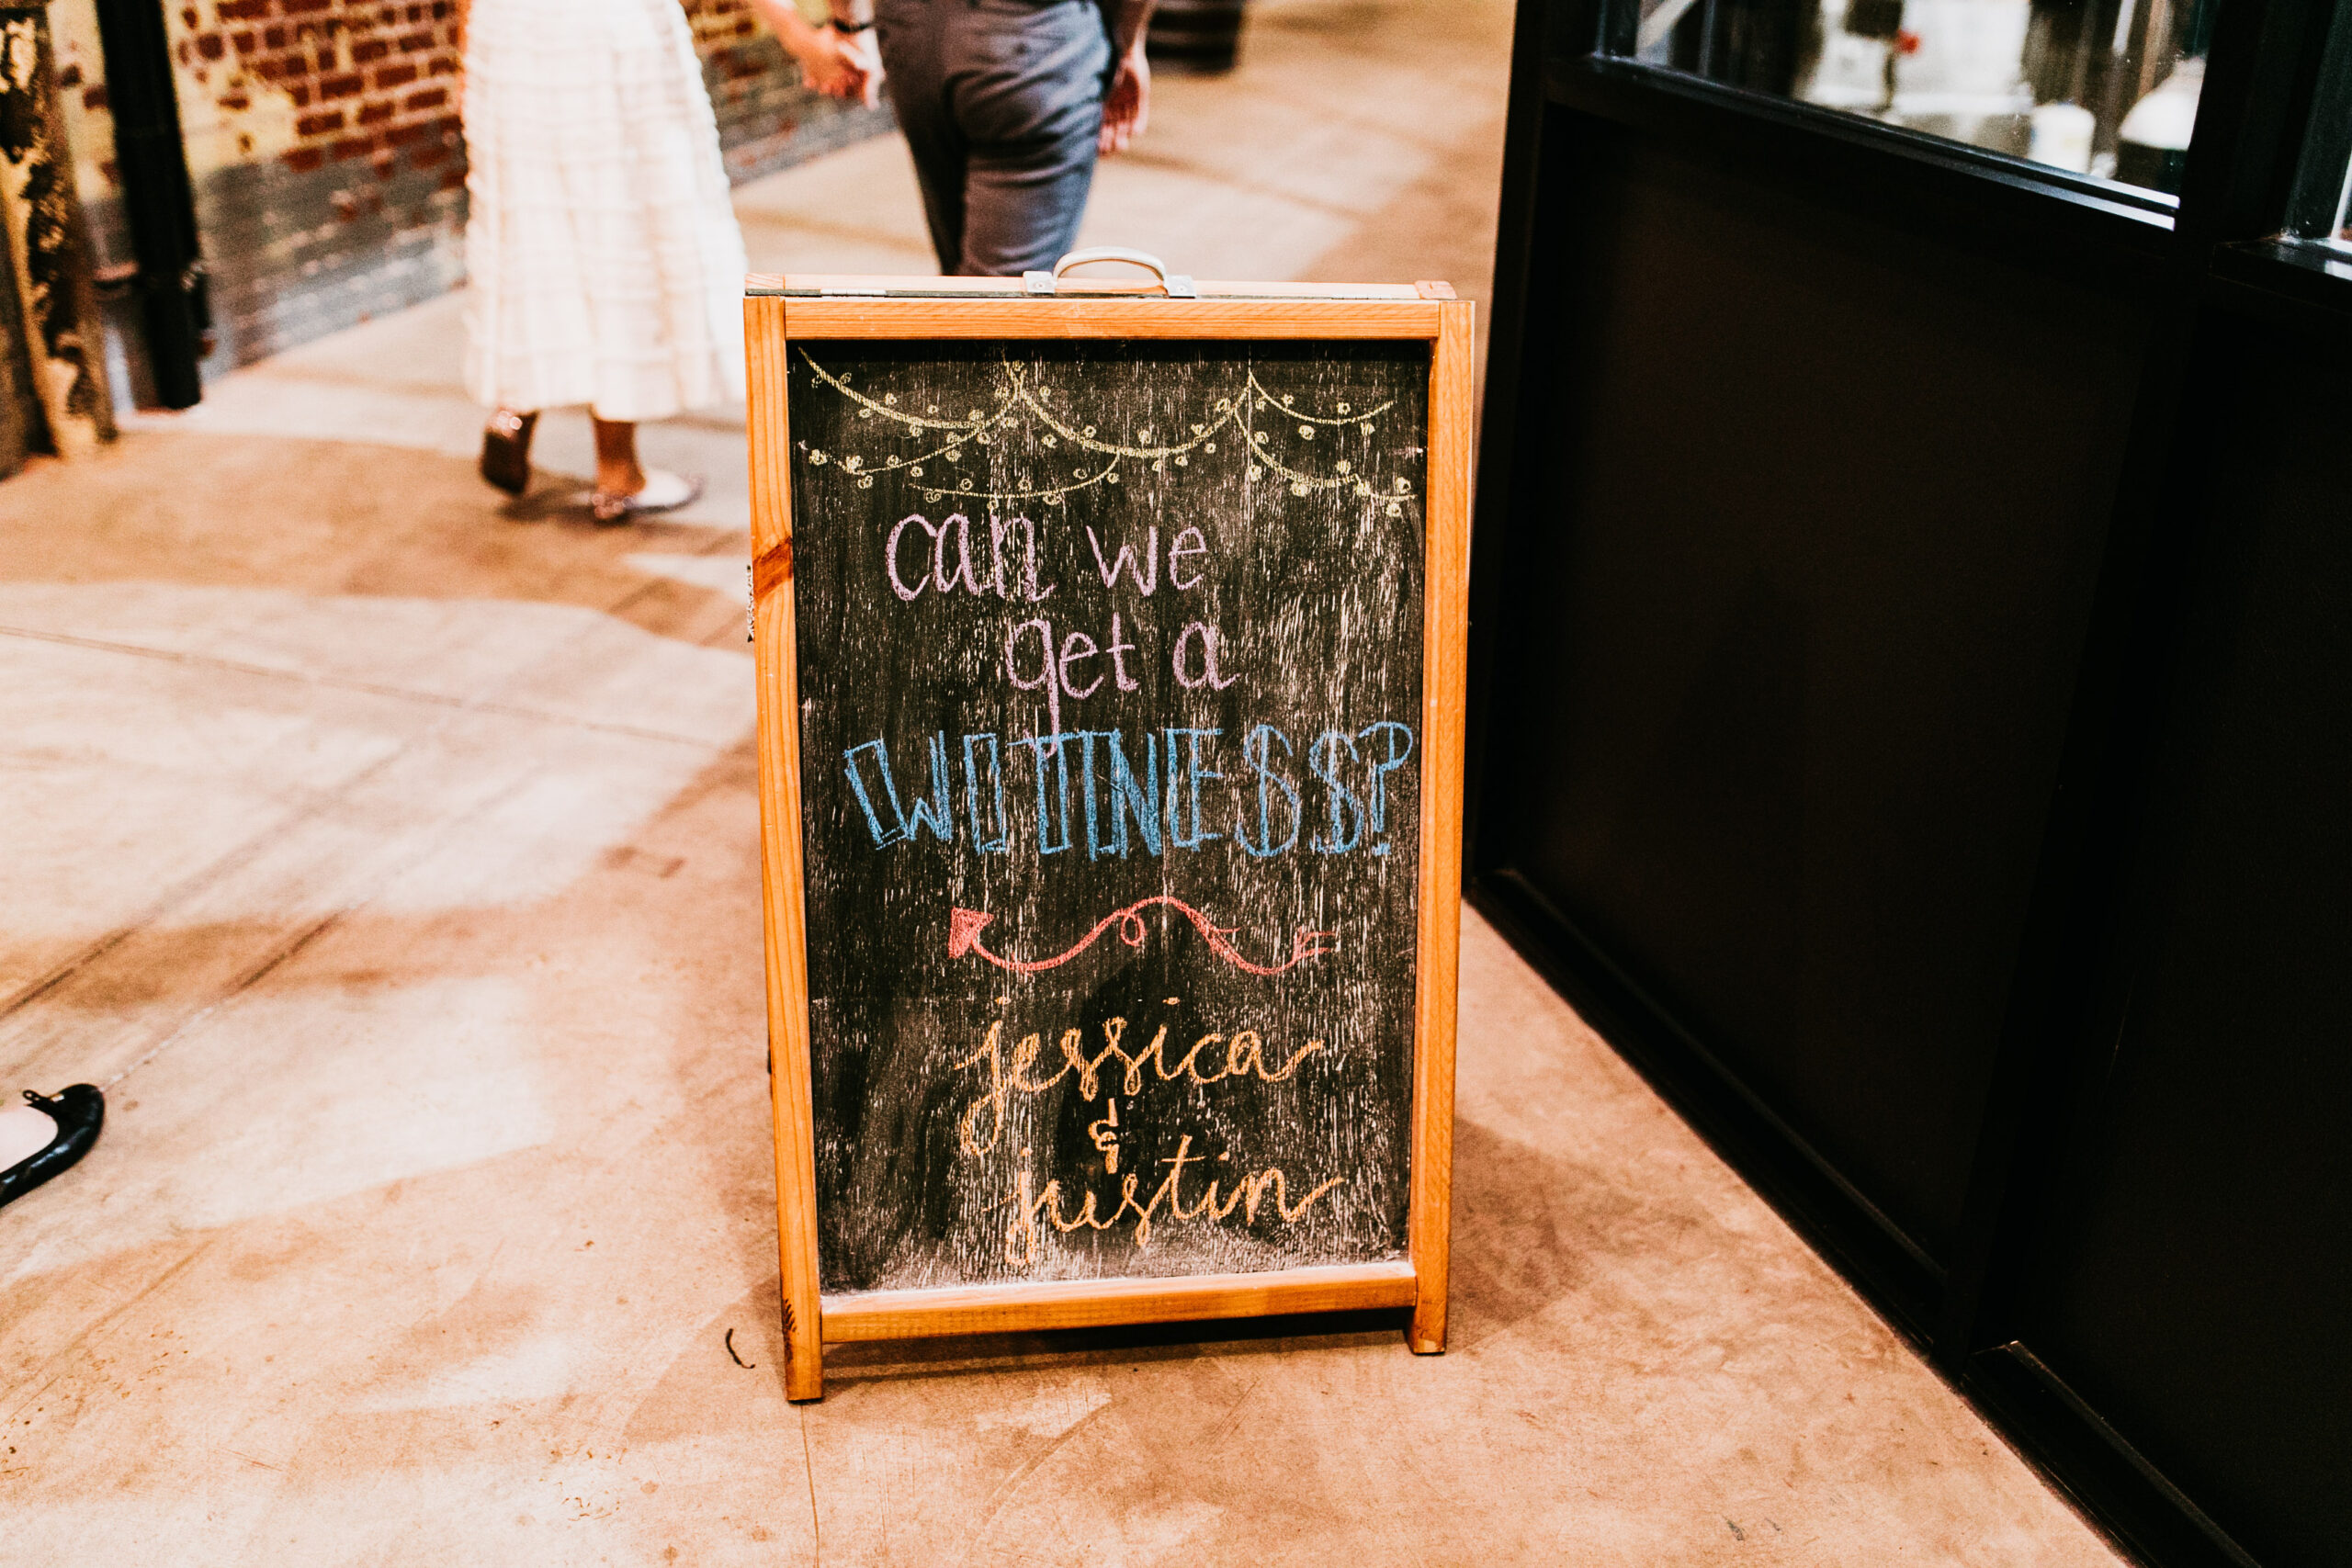 can we
get a
WITNESS?
jessica
&
justin